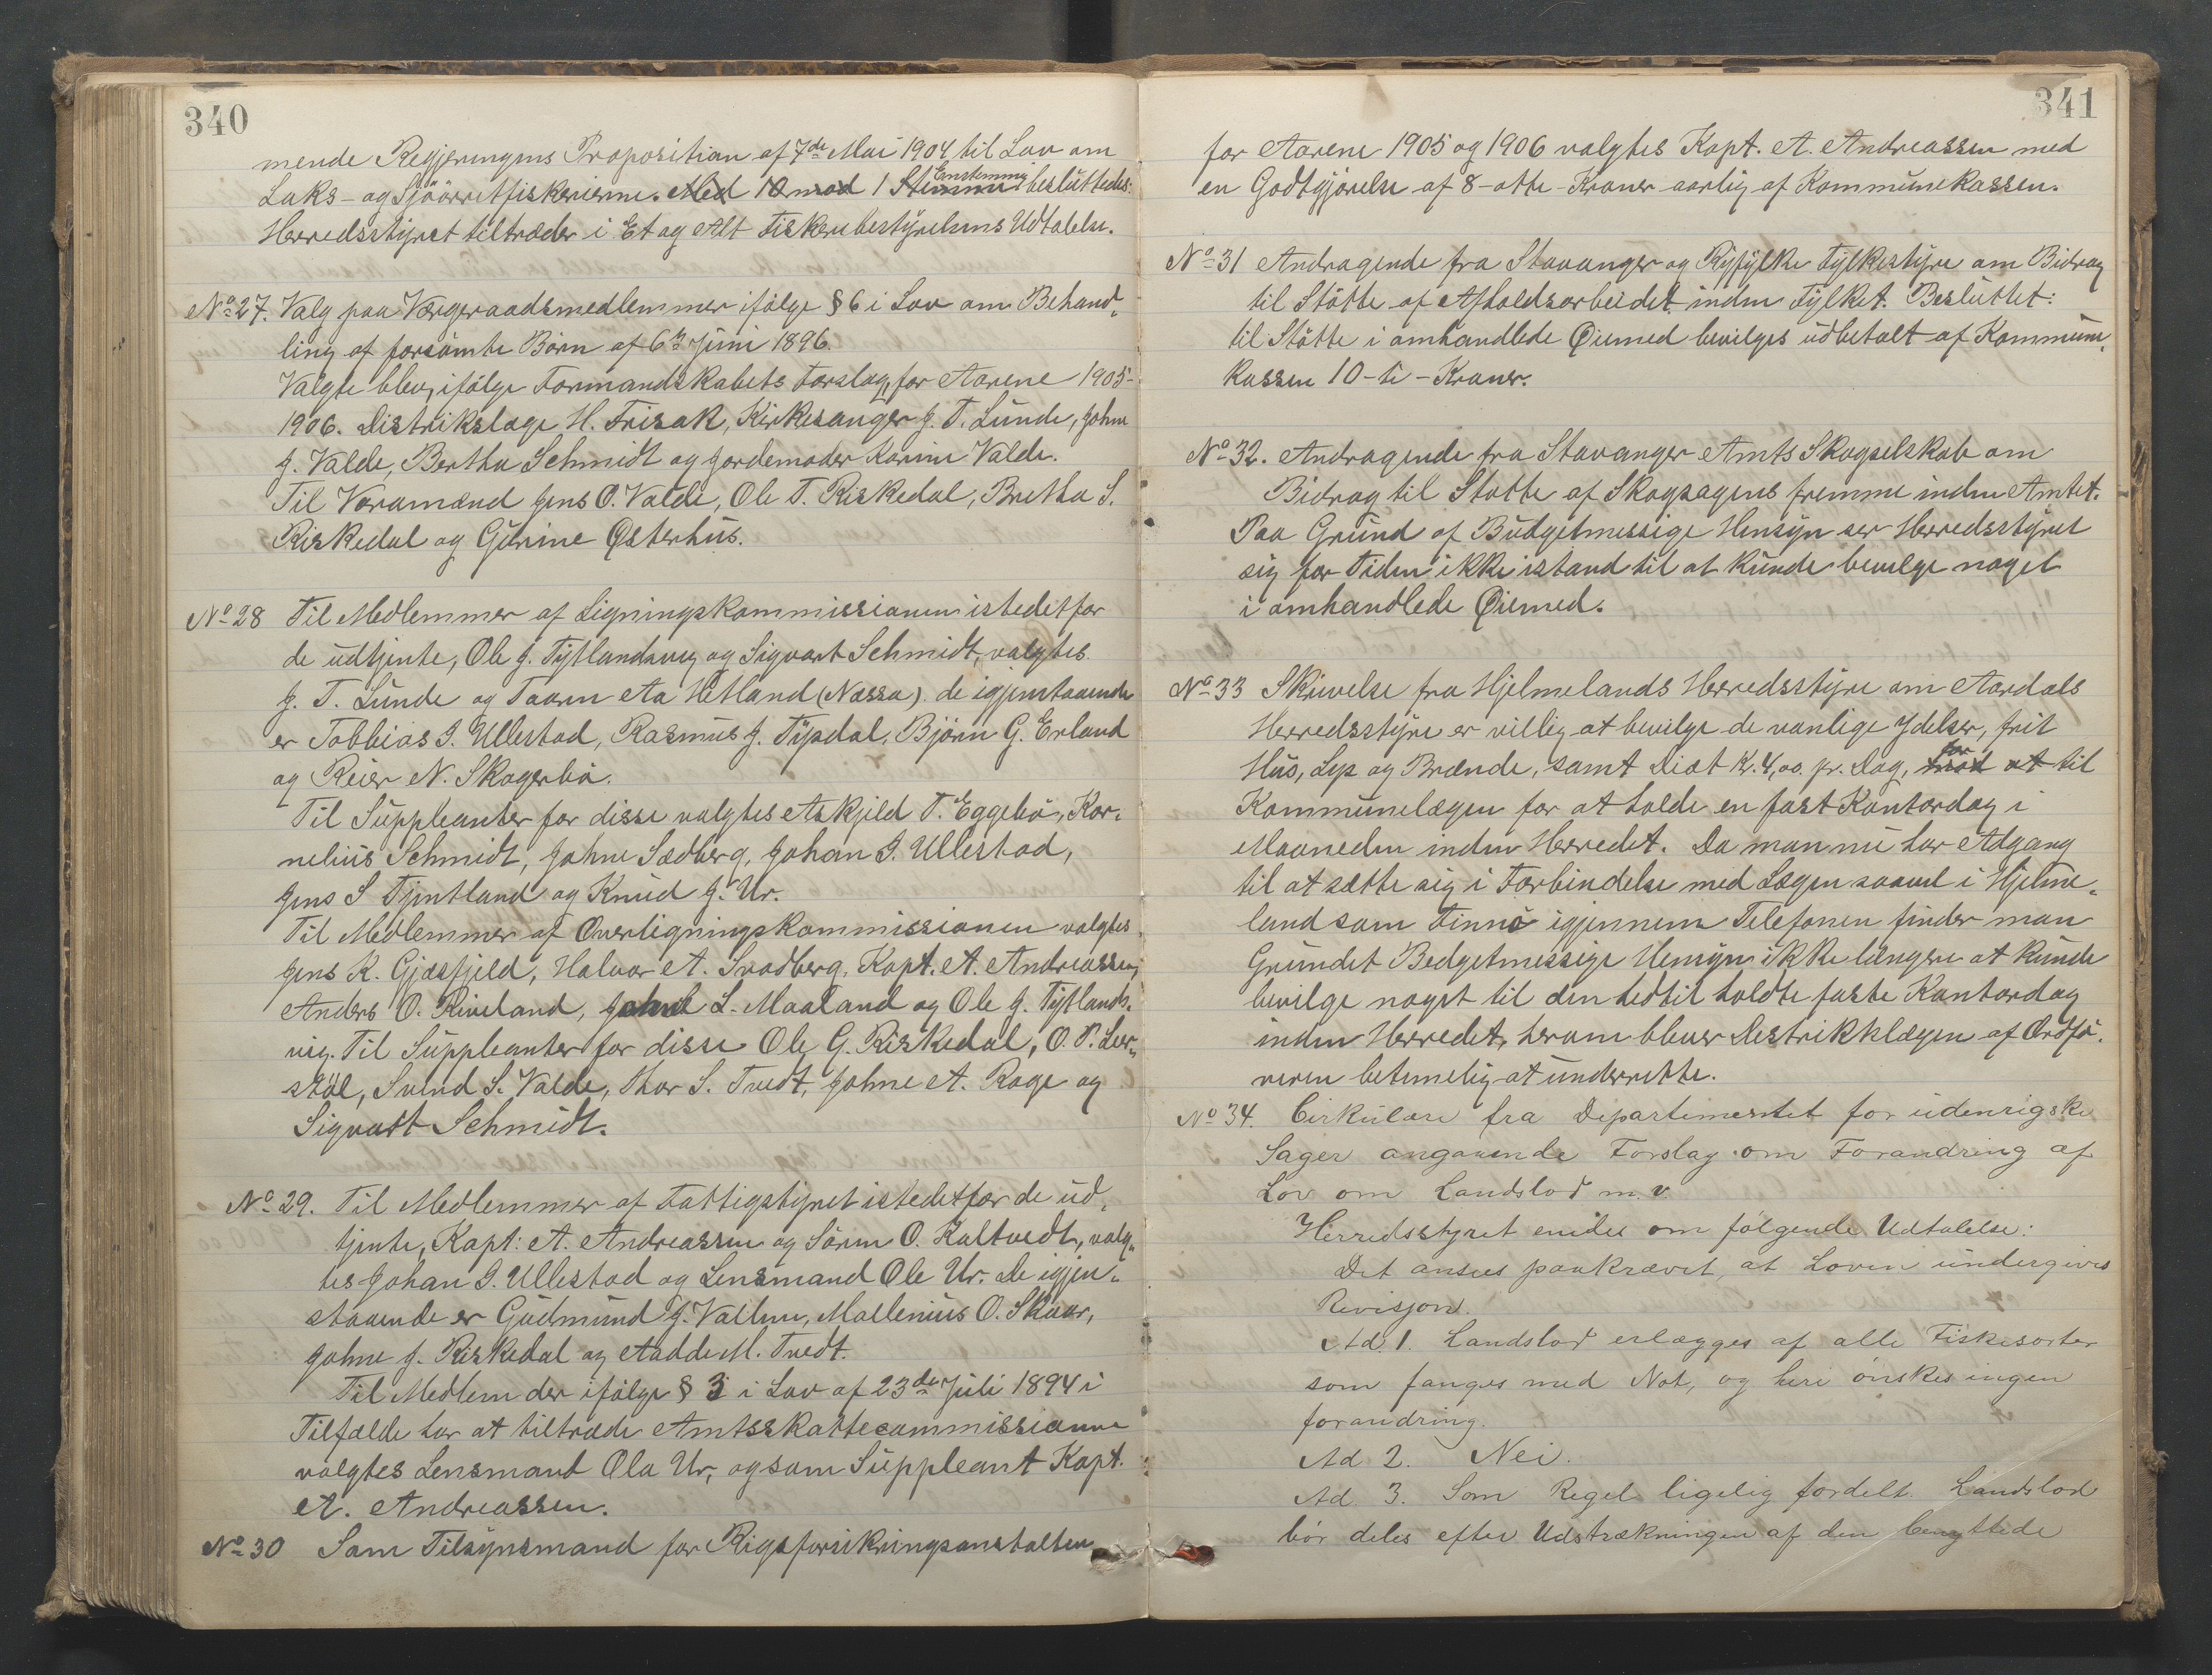 340
mende Regjeringens Proposition af 7de Mai 1904 til Lov om
Laks- og Sjöörretfiskerierne. Med 10 mod 1 Stemme Enstemmig besluttedes:
Herredsstyret tiltræder i Et og Alt Fiskeribestyrelsens Udtalelse.
No 27. Valg paa Værgeraadsmedlemmer ifölge § 6 i Lov om Behand-
ling af forsömte Börn af 6te Juni 1896.
Valgte blev, ifölge Formandskabets Forslag, for Aarene 1905-
1906. Distrikslæge H. Frisak, Kirkesanger J. T. Lunde, Johne
J. Valde, Bertha Schmidt og Jordemoder Karine Valde.
Til Varamænd Jens O. Valde, Ole T. Riskedal, Bretha S.
Riskedal og Gurine Østerhus.
No 28 Til Medlemmer af Ligningskommissionen istedetfor
de udtjente, Ole J. Tytlandsvig og Sigvart Schmidt, valgtes
J. T. Lunde og Taarn Aa Hetland (Nessa). de igjenstaaende
er Tobbias I. Ullestad, Rasmus J. Tysdal, Björn G. Erland
og Reier N. Skogerbö.
Til Suppleanter for disse valgtes Askjeld T. Eggebö, Kor-
nelius Schmidt, Johne Sædberg, Johan I. Ullestad,
Jens S Tjentland og Knud J. Ur.
Til Medlemmer af Overligningskommissionen valgtes
Jens K. Gjæsfjeld, Halvor A. Svadberg, Kapt. A. Andreassen,
Anders O. Riveland, L. Maaland og Ole J. Tytlands-
vig. Til Suppleanter for disse Ole G. Riskedal, O. P. Leer-
stöl, Svend S. Valde, Thor S. Tvedt, Johne A. Roge og
Sigvart Schmidt.
No 29. Til Medlemmer af Fattigstyret istedetfor de ud-
tjente, Kapt: A. Andreassen og Sören O. Kaltvedt, valg-
tes Johan I. Ullestad og Lensmand Ole Ur. De igjen-
staaende er Gudmund J. Valhne, Mallenius O. Skaar,
Johne J. Riskedal og Aadde M. Tvedt.
Til Medlem der ifölge § 3 i Lov af 23de Juli 1894 i
Tilfælde har at tiltræde Amtsskattecommissionen
valgtes Lensmand Ola Ur, og som Suppleant Kapt.
A. Andreassen.
No 30 Som Tilsynsmand for Rigsforsikringsanstalten
341
for Aarene 1905 og 1906 valgtes Kapt. A. Andreassen med
en Godtgjörelse af 8-otte-Kroner aarlig af Kommunekassen.
No 31 Andragende fra Stavanger og Ryfylke Fylkestyre om Bidrag
til Stötte af Afholdsarbeidet inden Fylket. Besluttet:
til Stötte i omhandlede Øiemed bevilges udbetalt af Kommune-
kassen 10-ti-Kroner.
No 32. Andragende fra Stavanger Amts Skogselskab om
Bidrag til Stötte af Skogsagens fremme inden Amtet.
Paa Grund af Budgetmessige Hensyn ser Herredsstyret
sig for Tiden ikke istand til at kunde bevilge noget
i omhandlede Øiemed.
No 33 Skrivelse fra Hjelmelands Herredsstyre om Aardals
Herredsstyre er villig at bevilge de vanlige Ydelser, frit
Hus, Lys og Brænde, samt Diæt Kr. 4,00. pr. Dag, mod at for til
Kommunelægen for at holde en fast Kontordag i
Maaneden inden Herredet. Da man nu har Adgang
til at sætte sig i Forbindelse med Lægen saavel i Hjelme-
land som Finnö igjennem Telefonen finder man
Grundet Bedgetmessige Hensyn ikke længere at kunde
bevilge noget til den hidtil holdte faste Kontordag
inden Herredet, herom bliver Distrikklægen af Ordfö-
reren betimelig at underrette.
No 34. Cirkulære fra Departementet for udenrigske
Sager angaaende Forslag om Forandring af
Lov om Landslod m. v.
Herredsstyret enides om følgende Udtalelse:
Det ansees paakrævet, at Loven undergives
Revisjon.
Ad. 1. Landslod erlægges af alle Fiskesorter
som fanges med Not, og heri ønskes ingen
forandring.
Ad 2. Nei.
Ad. 3. Som Regel ligelig fordelt. Landslod
bör deles efter Udstrækningen af den benyttede